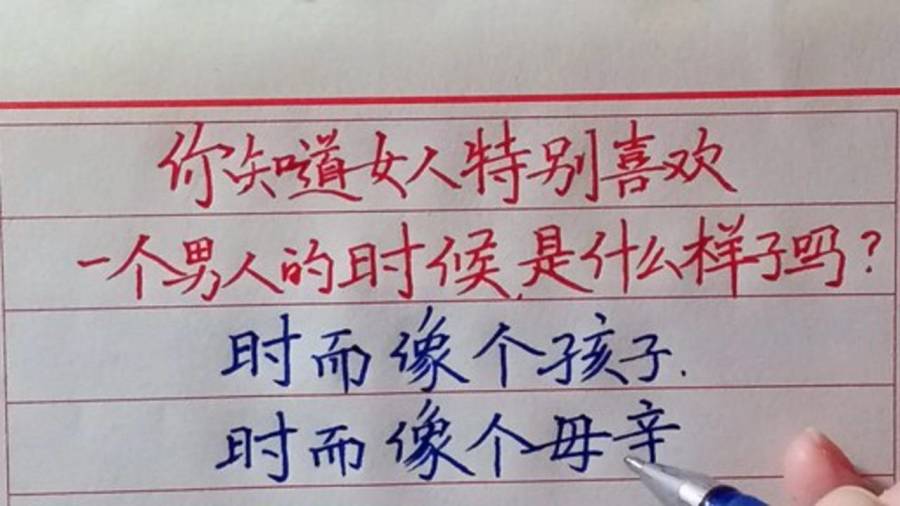 你知道女人特别喜欢
一个男人的时候,是什么样子吗?
时而像个孩子.
时而像个母亲